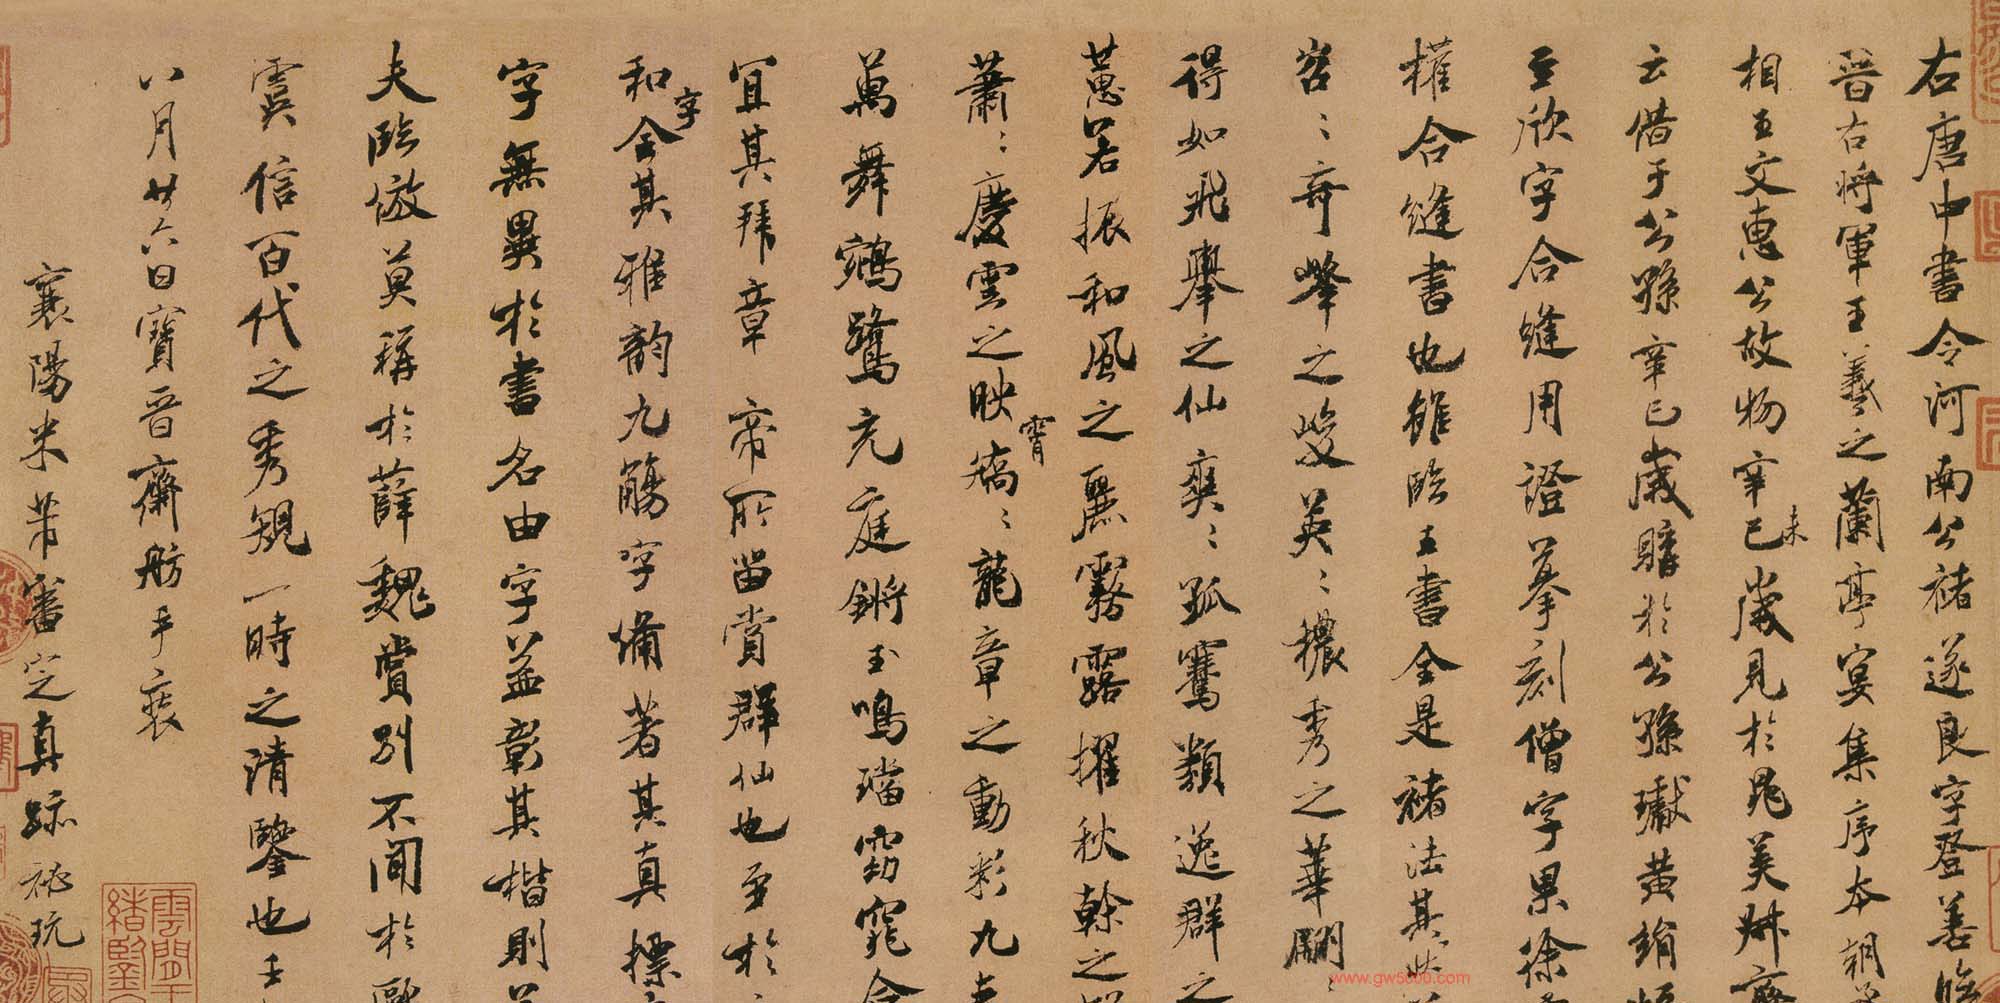 右唐中書令河南公褚遂良字登善臨
晉右將軍王羲之蘭亭宴集序本朝
相王文惠公故物辛巳未歲見於晁美叔齋
云借于公孫辛巳歲購於公孫瓛黃絹
至欣字合縫用證摹刻僧字果徐
權合縫書也雖臨王書全是褚法其狀
岩〻奇峰之峻英〻穠秀之華翩〻
得如飛舉之仙爽〻孤騫類逸群之
蕙若振和風之麗霧露擢秋幹之
蕭〻慶雲之映霄矯〻龍章之動彩九
萬舞鵷鷺充庭鏘玉鳴璫窈窕合
宜其拜章帝所留賞群仙也至於
和字全其雅韵九觴字備著其真標
字無異於書名由字益彰其楷則
夫臨倣莫稱於薛魏賞別不聞於歐
虞信百代之秀規一時之清鑒也壬
八月廿六日寶晉齋舫手裝
襄陽米芾審定真跡祕玩
www.gw5000.com